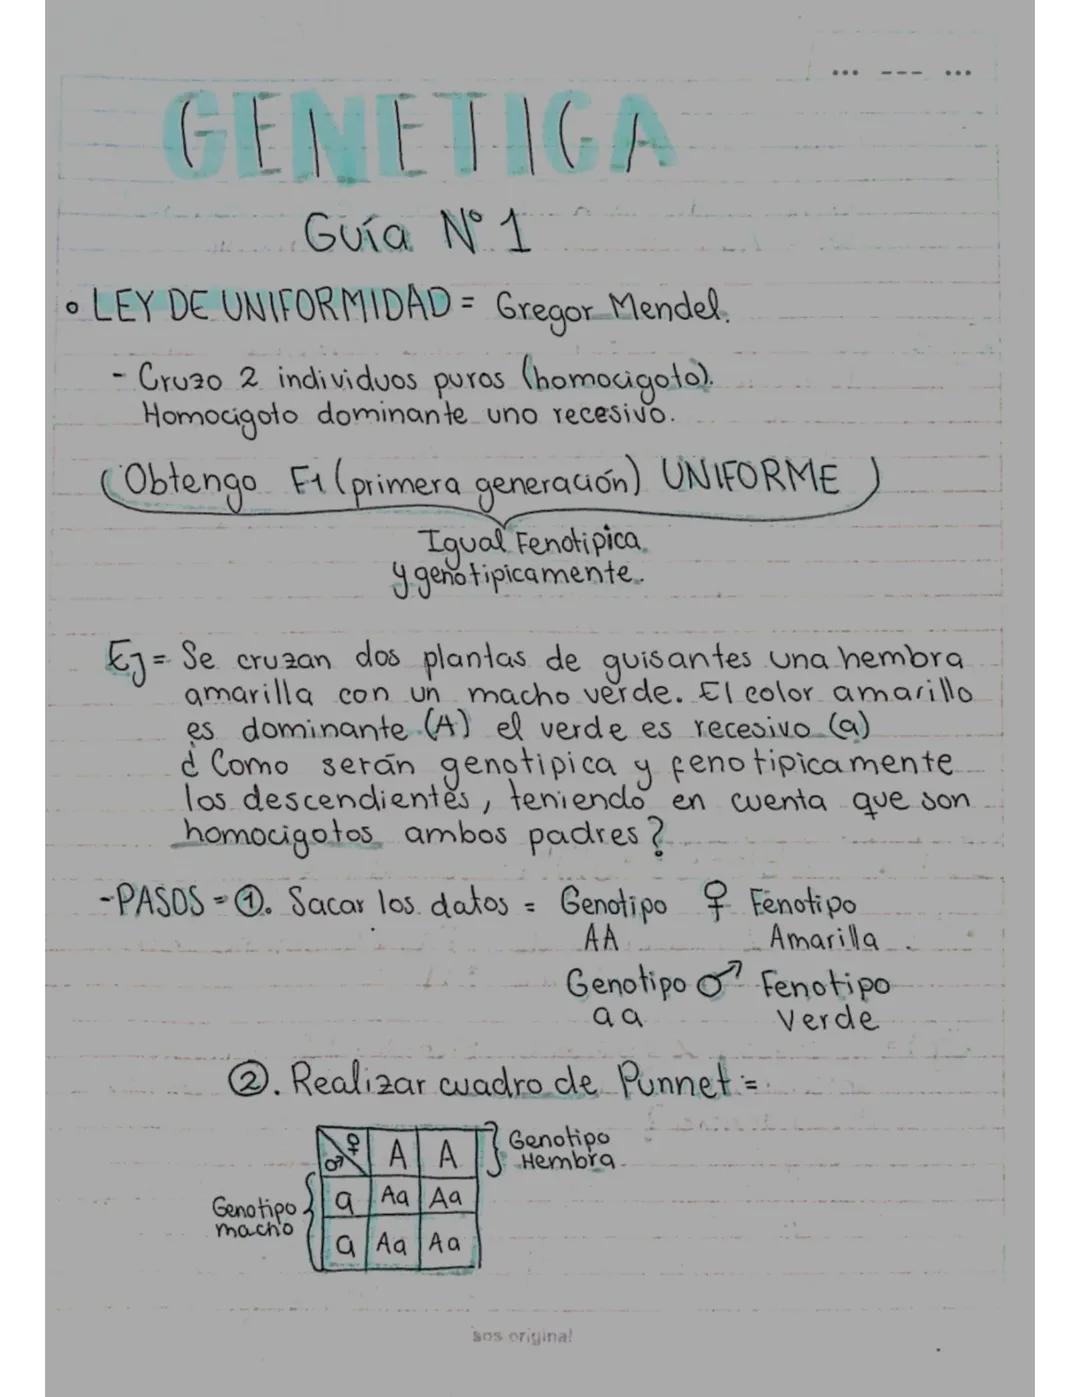 GENETICA
Guía N° 1
• LEY DE UNIFORMIDAD = Gregor Mendel.
- Cruzo 2 individuos puros (homocigoto).
Homocigoto dominante uno recesivo.
(Obtengo F1 (primera generación) UNIFORME)
Igual Fenotipica
y genotipicamente.
Ej = Se cruzan dos plantas de guisantes una hembra
amarilla con un macho verde. El color amarillo
es dominante (A) el verde es recesivo (a)
¿Como serán genotipica y fenotipicamente
los descendientes, teniendo en cuenta que son
homocigotos ambos padres?
-PASOS = ①. Sacar los datos = Genotipo ♀ Fenotipo
AA Amarilla
Genotipo ♂ Fenotipo
aa Verde
②. Realizar cuadro de Punnet =
♂ ♀ A A Genotipo
Hembra
Genotipo
macho
a Aa Aa
a Aa Aa
sos original